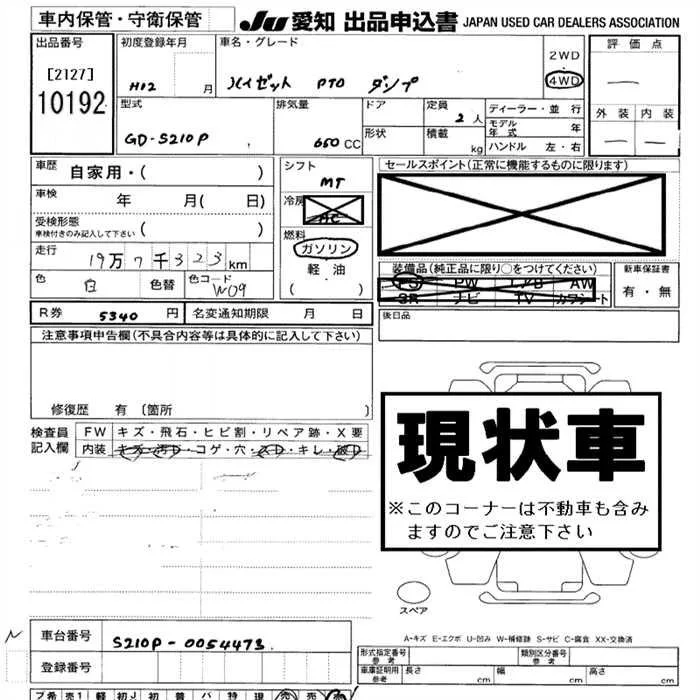 車内保管・守衛保管
JU 愛知 出品申込書 JAPAN USED CAR DEALERS ASSOCIATION
出品番号
[2127]
10192
初度登録年月
H12 月
車名・グレード
ハイゼット PTO ダンプ
2WD
・
4WD
評価点
—
外装 内装
— —
型式
GD-S210P
排気量
660 CC
ドア
形状
定員
2 人
積載
kg
ディーラー・並 行
モデル年式 年
ハンドル 左・右
車歴 自家用・( )
車検 年 月( 日)
受検形態
車検付きのみ記入して下さい ( )
走行 19万7千323km
色 白 色替 色コード W09
シフト
MT
冷房
AC
燃料
ガソリン
軽油
( )
セールスポイント(正常に機能するものに限ります)
装備品(純正品に限り○をつけてください)
PS PW エアB AW
SR ナビ TV カワシート
新車保証書
有・無
後日品
R券 5340 円 名変通知期限 月 日
注意事項申告欄(不具合内容等は具体的に記入して下さい)
修復歴 有〔箇所 〕
検査員
記入欄
FW キズ・飛石・ヒビ割・リペア跡・X要
内装 キズ・汚D・コゲ・穴・スD・キレ・破D
現状車
※このコーナーは不動車も含み
ますのでご注意下さい
スペア
A-キズ E-エクボ U-凹み W-補修跡 S-サビ C-腐食 XX-交換済
N
車台番号 S210P-0054473
登録番号
形式指定番号
参考
類別区分番号
参考
車庫証明用
参考
長さ cm 幅 cm 高さ cm